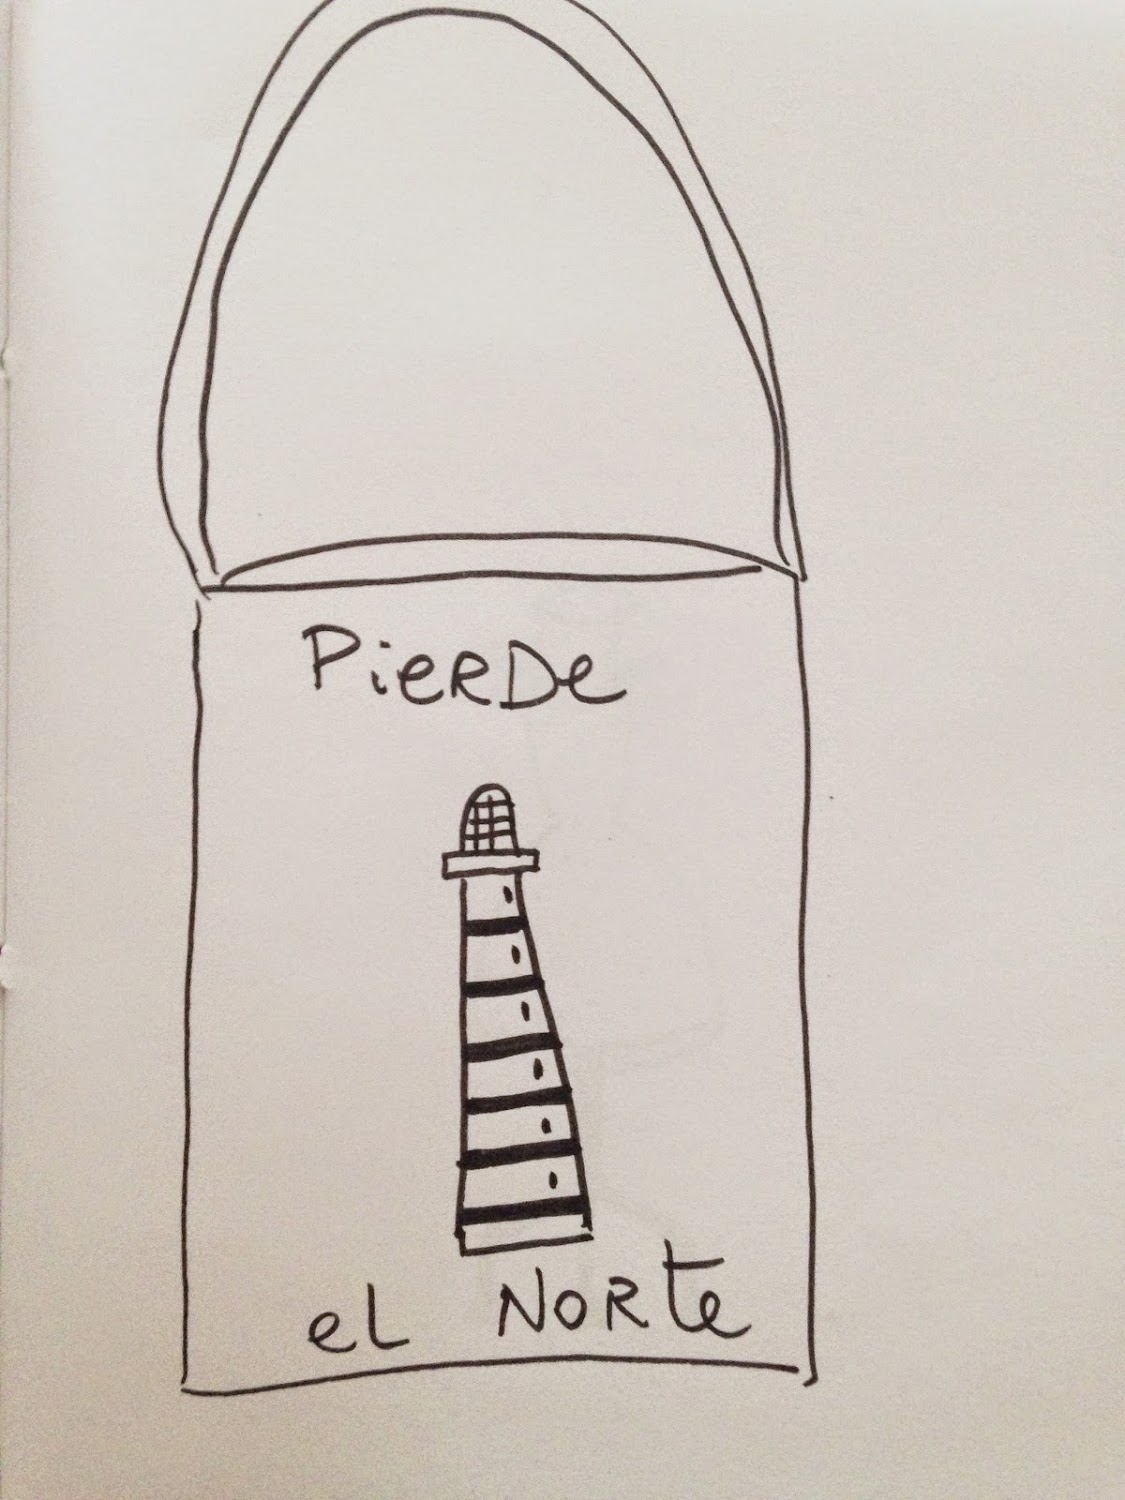 PierDe
el NORte